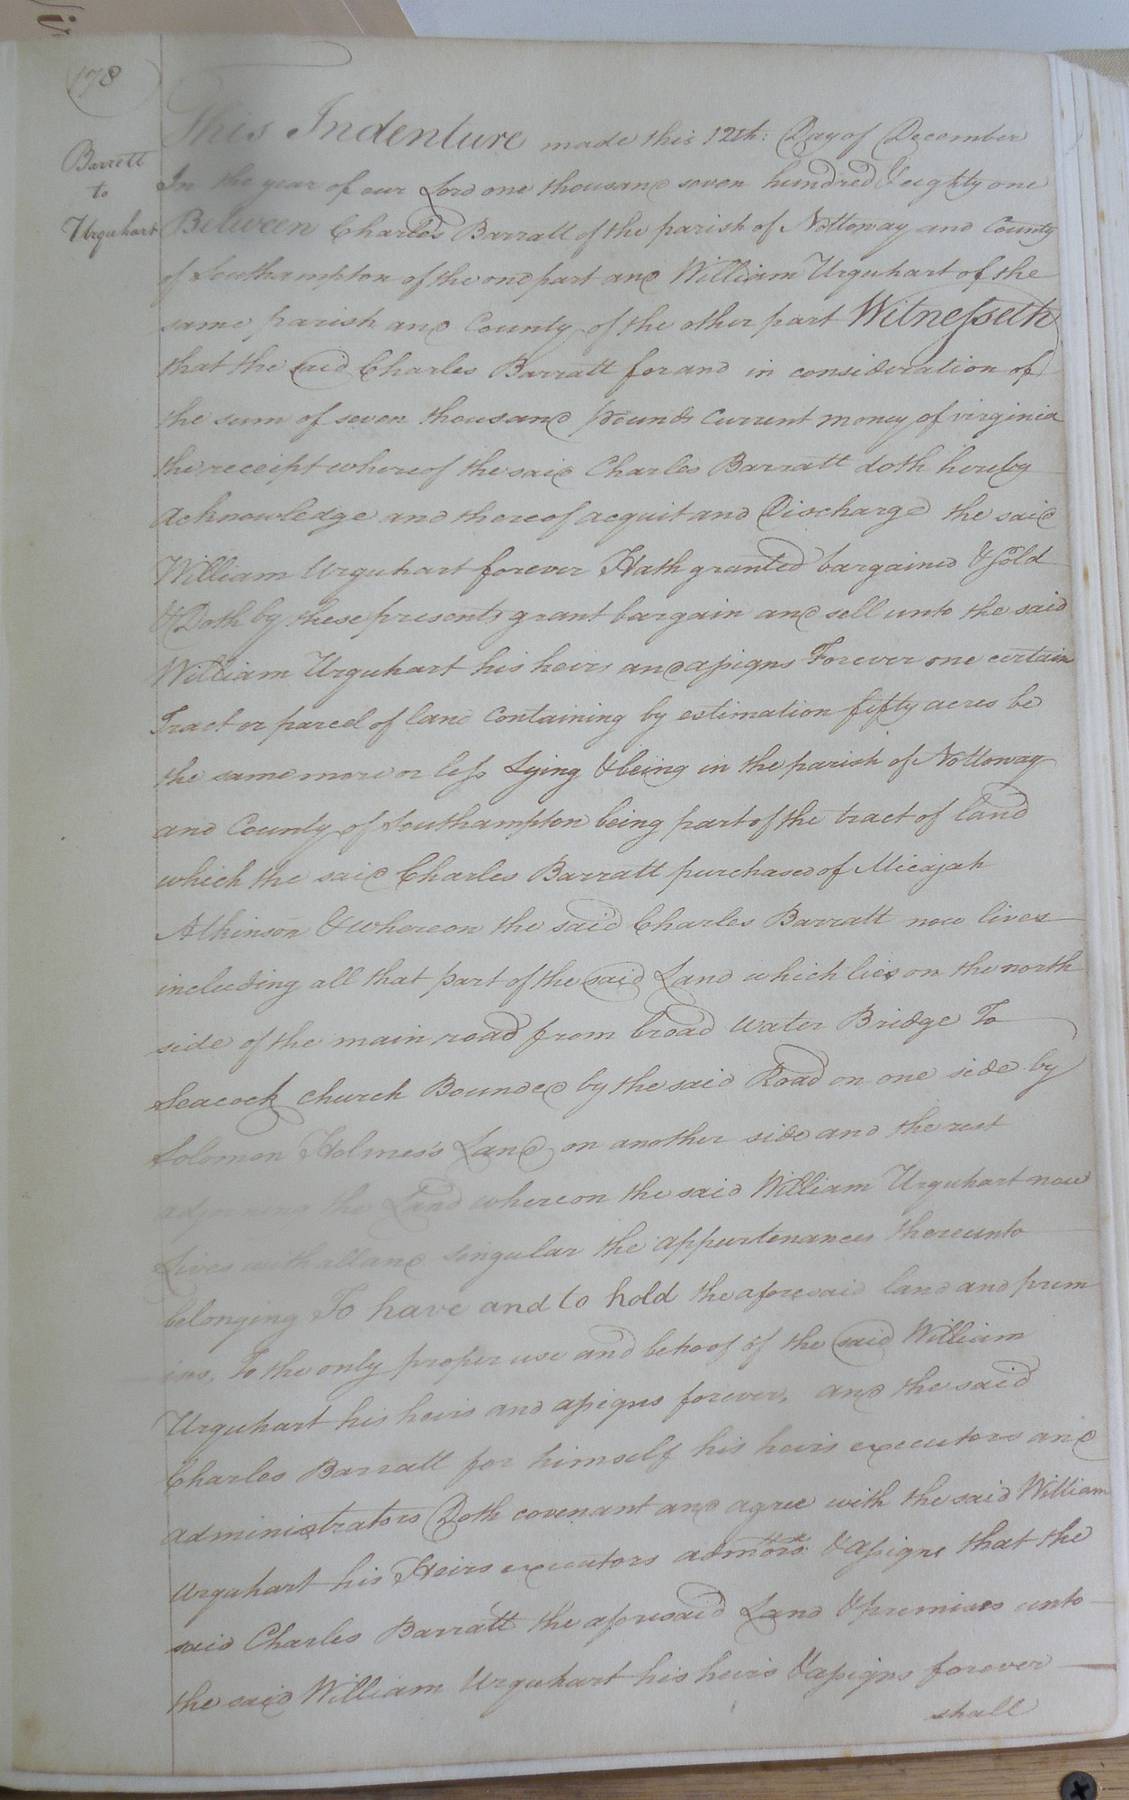 178
Barrett
to
Urquhart
This Indenture made this 12th: Day of December
In the year of our Lord one thousand seven hundred & eighty one
Between Charles Barratt of the parish of Nottoway and County
of Southampton of the one part and William Urquhart of the
same parish and County of the other part Witnesseth
that the said Charles Barratt for and in consideration of
the sum of seven thousand pounds Current money of virginia
the receipt whereof the said Charles Barratt doth hereby
Acknowledge and thereof acquit and Discharge the said
William Urquhart forever Hath granted bargained & sold
& Doth by these presents grant bargain and sell unto the said
William Urquhart his heirs and assigns Forever one certain
Tract or parcel of land Containing by estimation fifty acres be
the same more or less Lying & being in the parish of Nottoway
and County of Southampton being part of the tract of land
which the said Charles Barratt purchased of Micajah
Atkinson & whereon the said Charles Barratt now lives
including all that part of the said Land which lies on the north
side of the main road from broad Water Bridge To
Seacock Church Bounded by the said Road on one side by
Solomon Holmes's Land on another side and the rest
adjoining the Land whereon the said William Urquhart now
Lives with all and singular the appurtenances thereunto
belonging To have and to hold the aforesaid land and prem
ises, To the only proper use and behoof of the said William
Urquhart his heirs and assigns forever, and the said
Charles Barratt for himself his heirs executors and
administrators Doth covenant and agree with the said William
Urquhart his Heirs executors admttors & assigns that the
said Charles Barratt the aforesaid Land & premises unto
the said William Urquhart his heirs & assigns forever
shall